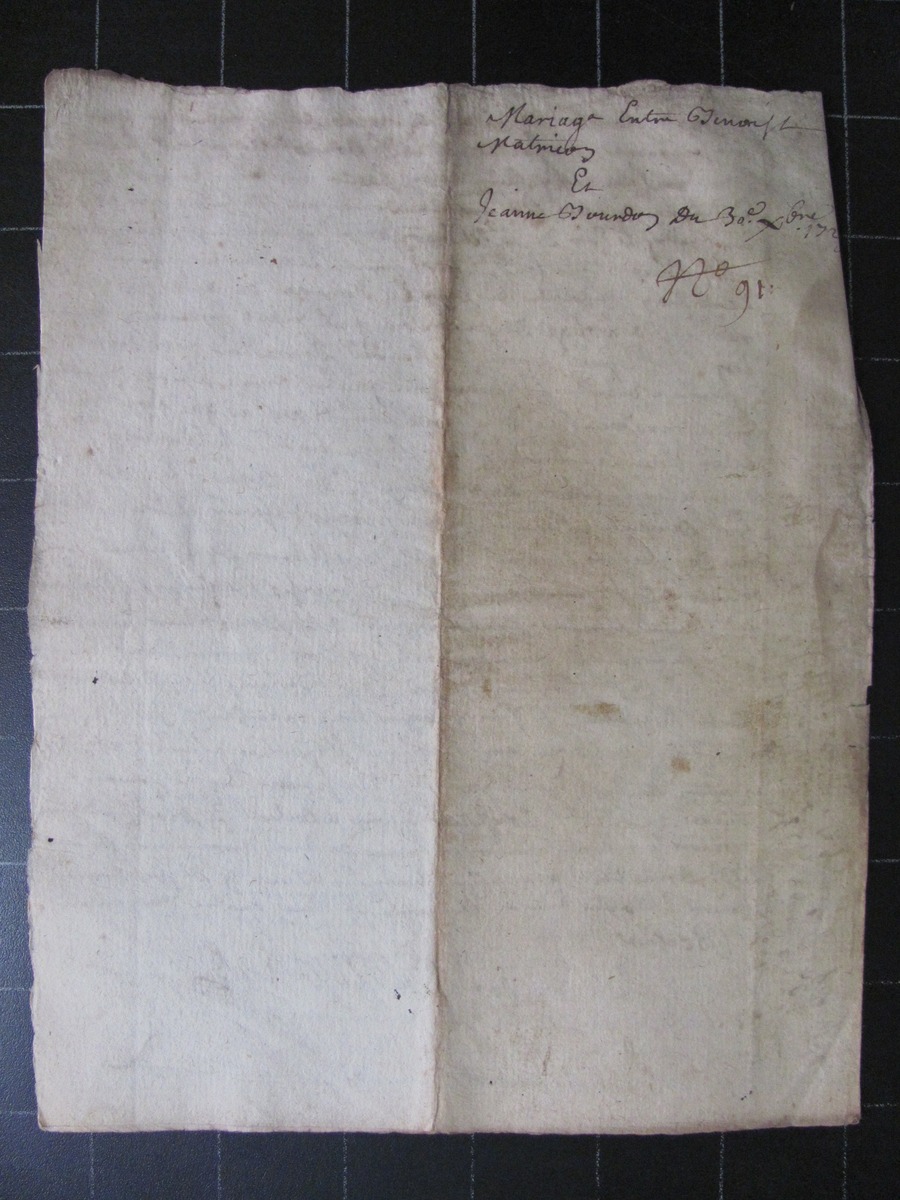 Mariage Entre Benoist
Matricon
Et
Jeanne Bourdon Du 30e. xbre
N° 91